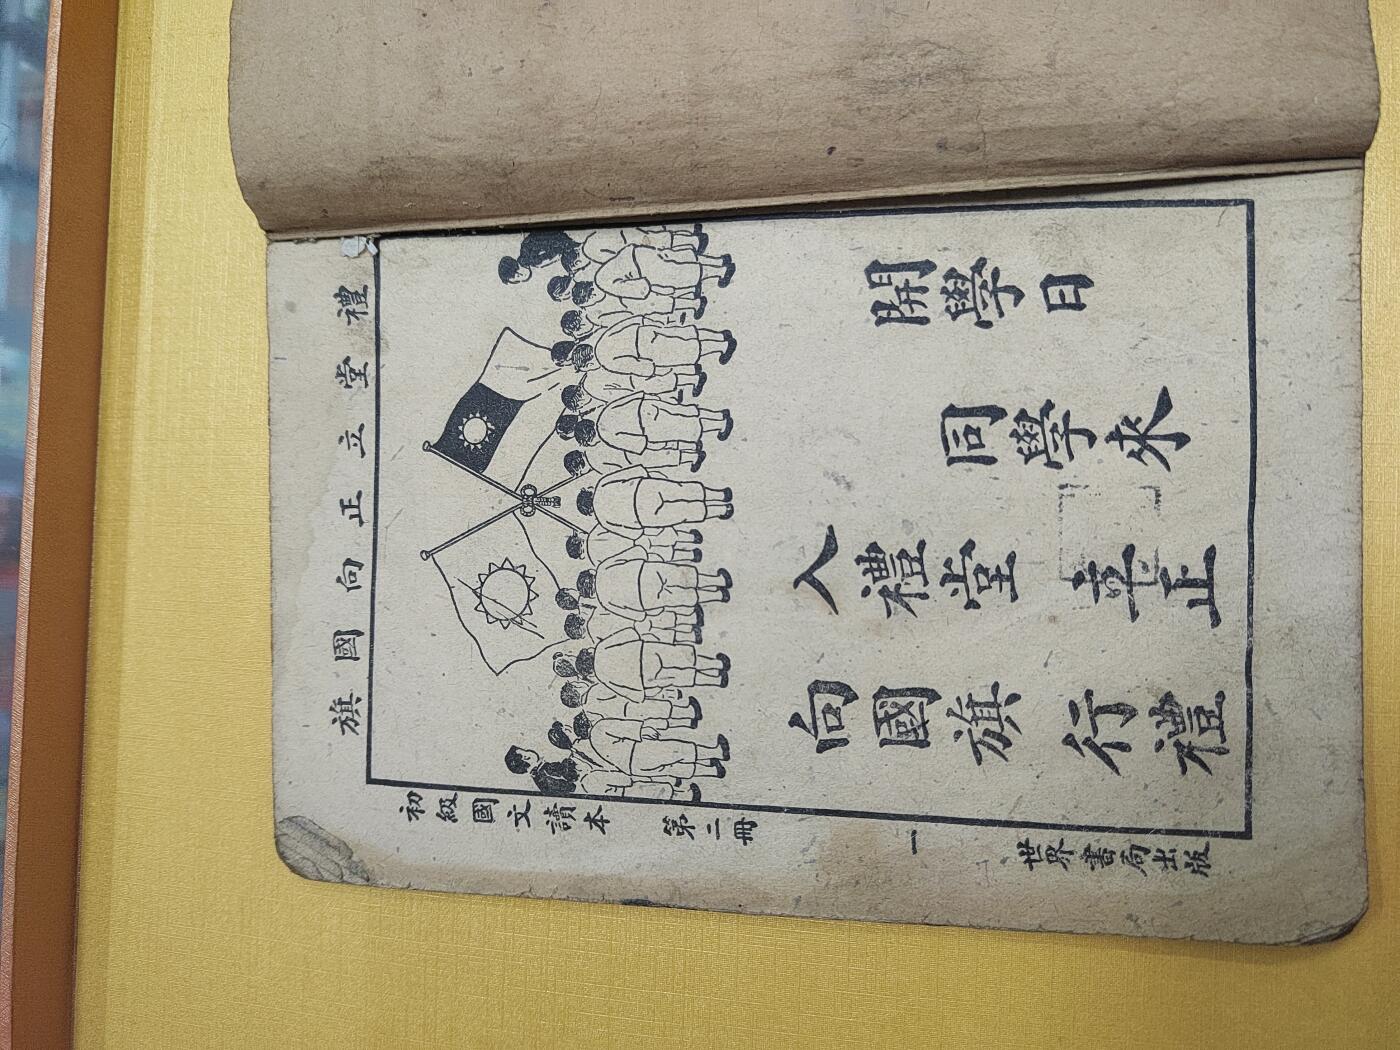 禮 堂 立 正 向 國 旗
開學日
同學來
入禮堂 立正
向國旗 行禮
初級國文讀本 第二冊 一 世界書局出版